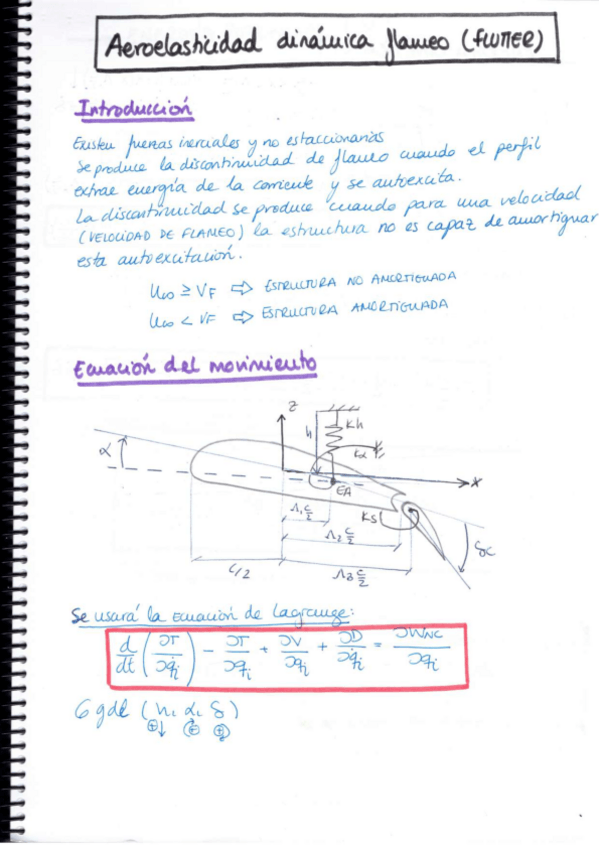 Aeroelasticidad dinámica flameo (FLUTTER)
Introducción
Existen fuerzas inerciales y no estaccionarias
Se produce la discontinuidad de flameo cuando el perfil
extrae energía de la corriente y se autoexcita.
La discontinuidad se produce cuando para una velocidad
(VELOCIDAD DE FLAMEO) la estructura no es capaz de amortiguar
esta autoexcitación.
U∞ ≥ VF ⇨ ESTRUCTURA NO AMORTIGUADA
U∞ < VF ⇨ ESTRUCTURA AMORTIGUADA
Ecuación del movimiento
z
h
Kh
α
Kα
x
EA
Λ₁ c/2
Kδ
Λ₂ c/2
δc
c/2
Λ₃ c/2
Se usará la Ecuación de Lagrange:
d/dt (∂T/∂q̇i) − ∂T/∂qi + ∂V/∂qi + ∂D/∂q̇i = ∂WNC/∂qi
6 gdl (h, α, δ)
⊕↓ ⊕ ⊕